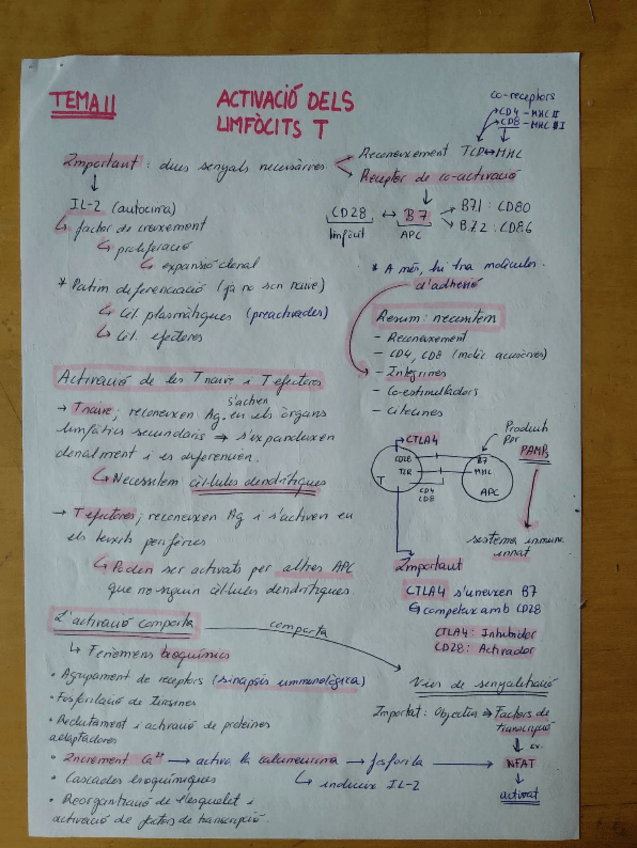 TEMA 11
ACTIVACIÓ DELS
LIMFÒCITS T
co-receptors
CD4 - MHC II
CD8 - MHC I
Important: dues senyals necessàries
Reconeixement TCD↔MHC
Receptor de co-activació
IL-2 (autocrina)
factor de creixement
proliferació
expansió clonal
CD28 ↔ B7
limfòcit
APC
B71: CD80
B72: CD86
* Patim diferenciació (ja no son naive)
Cèl. plasmàtiques (preactivades)
Cèl. efectores
* A més, hi ha molècules
d'adhesió
Resum: necessitem
- Reconeixement
- CD4, CD8 (molèc accesòries)
- Integrines
- Co-estimulladors
- Citecines
Activació de les T naive i T efectores
→ T naive; reconeixen Ag. s'activen en els òrgans
limfàtics secundaris ⇒ s'expandeixen
clonalment i es diferencien.
Necessitem cèl·lules dendrítiques
→ T efectores; reconeixen Ag i s'activen en
els teixits perifèrics
Poden ser activats per altres APC
que no siguin cèl·lules dendrítiques
CTLA4
CD28
TCR
T
CD4
CD8
B7
MHC
APC
Produït
per
PAMPs
sistema immune
innat
Important
CTLA4 s'uneixen B7
competeix amb CD28
CTLA4: Inhibidor
CD28: Activador
L'activació comporta
comporta
Fenòmens bioquímics
• Agrupament de receptors (sinapsis immunològica)
• Fosforilació de tirosines
• Reclutament i activació de proteïnes
adaptadores
• Increment Ca²⁺ → activa la calcineurina → fosforila → NFAT
indueix IL-2
• Cascades bioquímiques
• Reorganització de l'esquelet i
activació de factors de transcripció.
Vies de senyalització
Important: Objectiu ⇒ Factors de
transcripció
ex.
activat